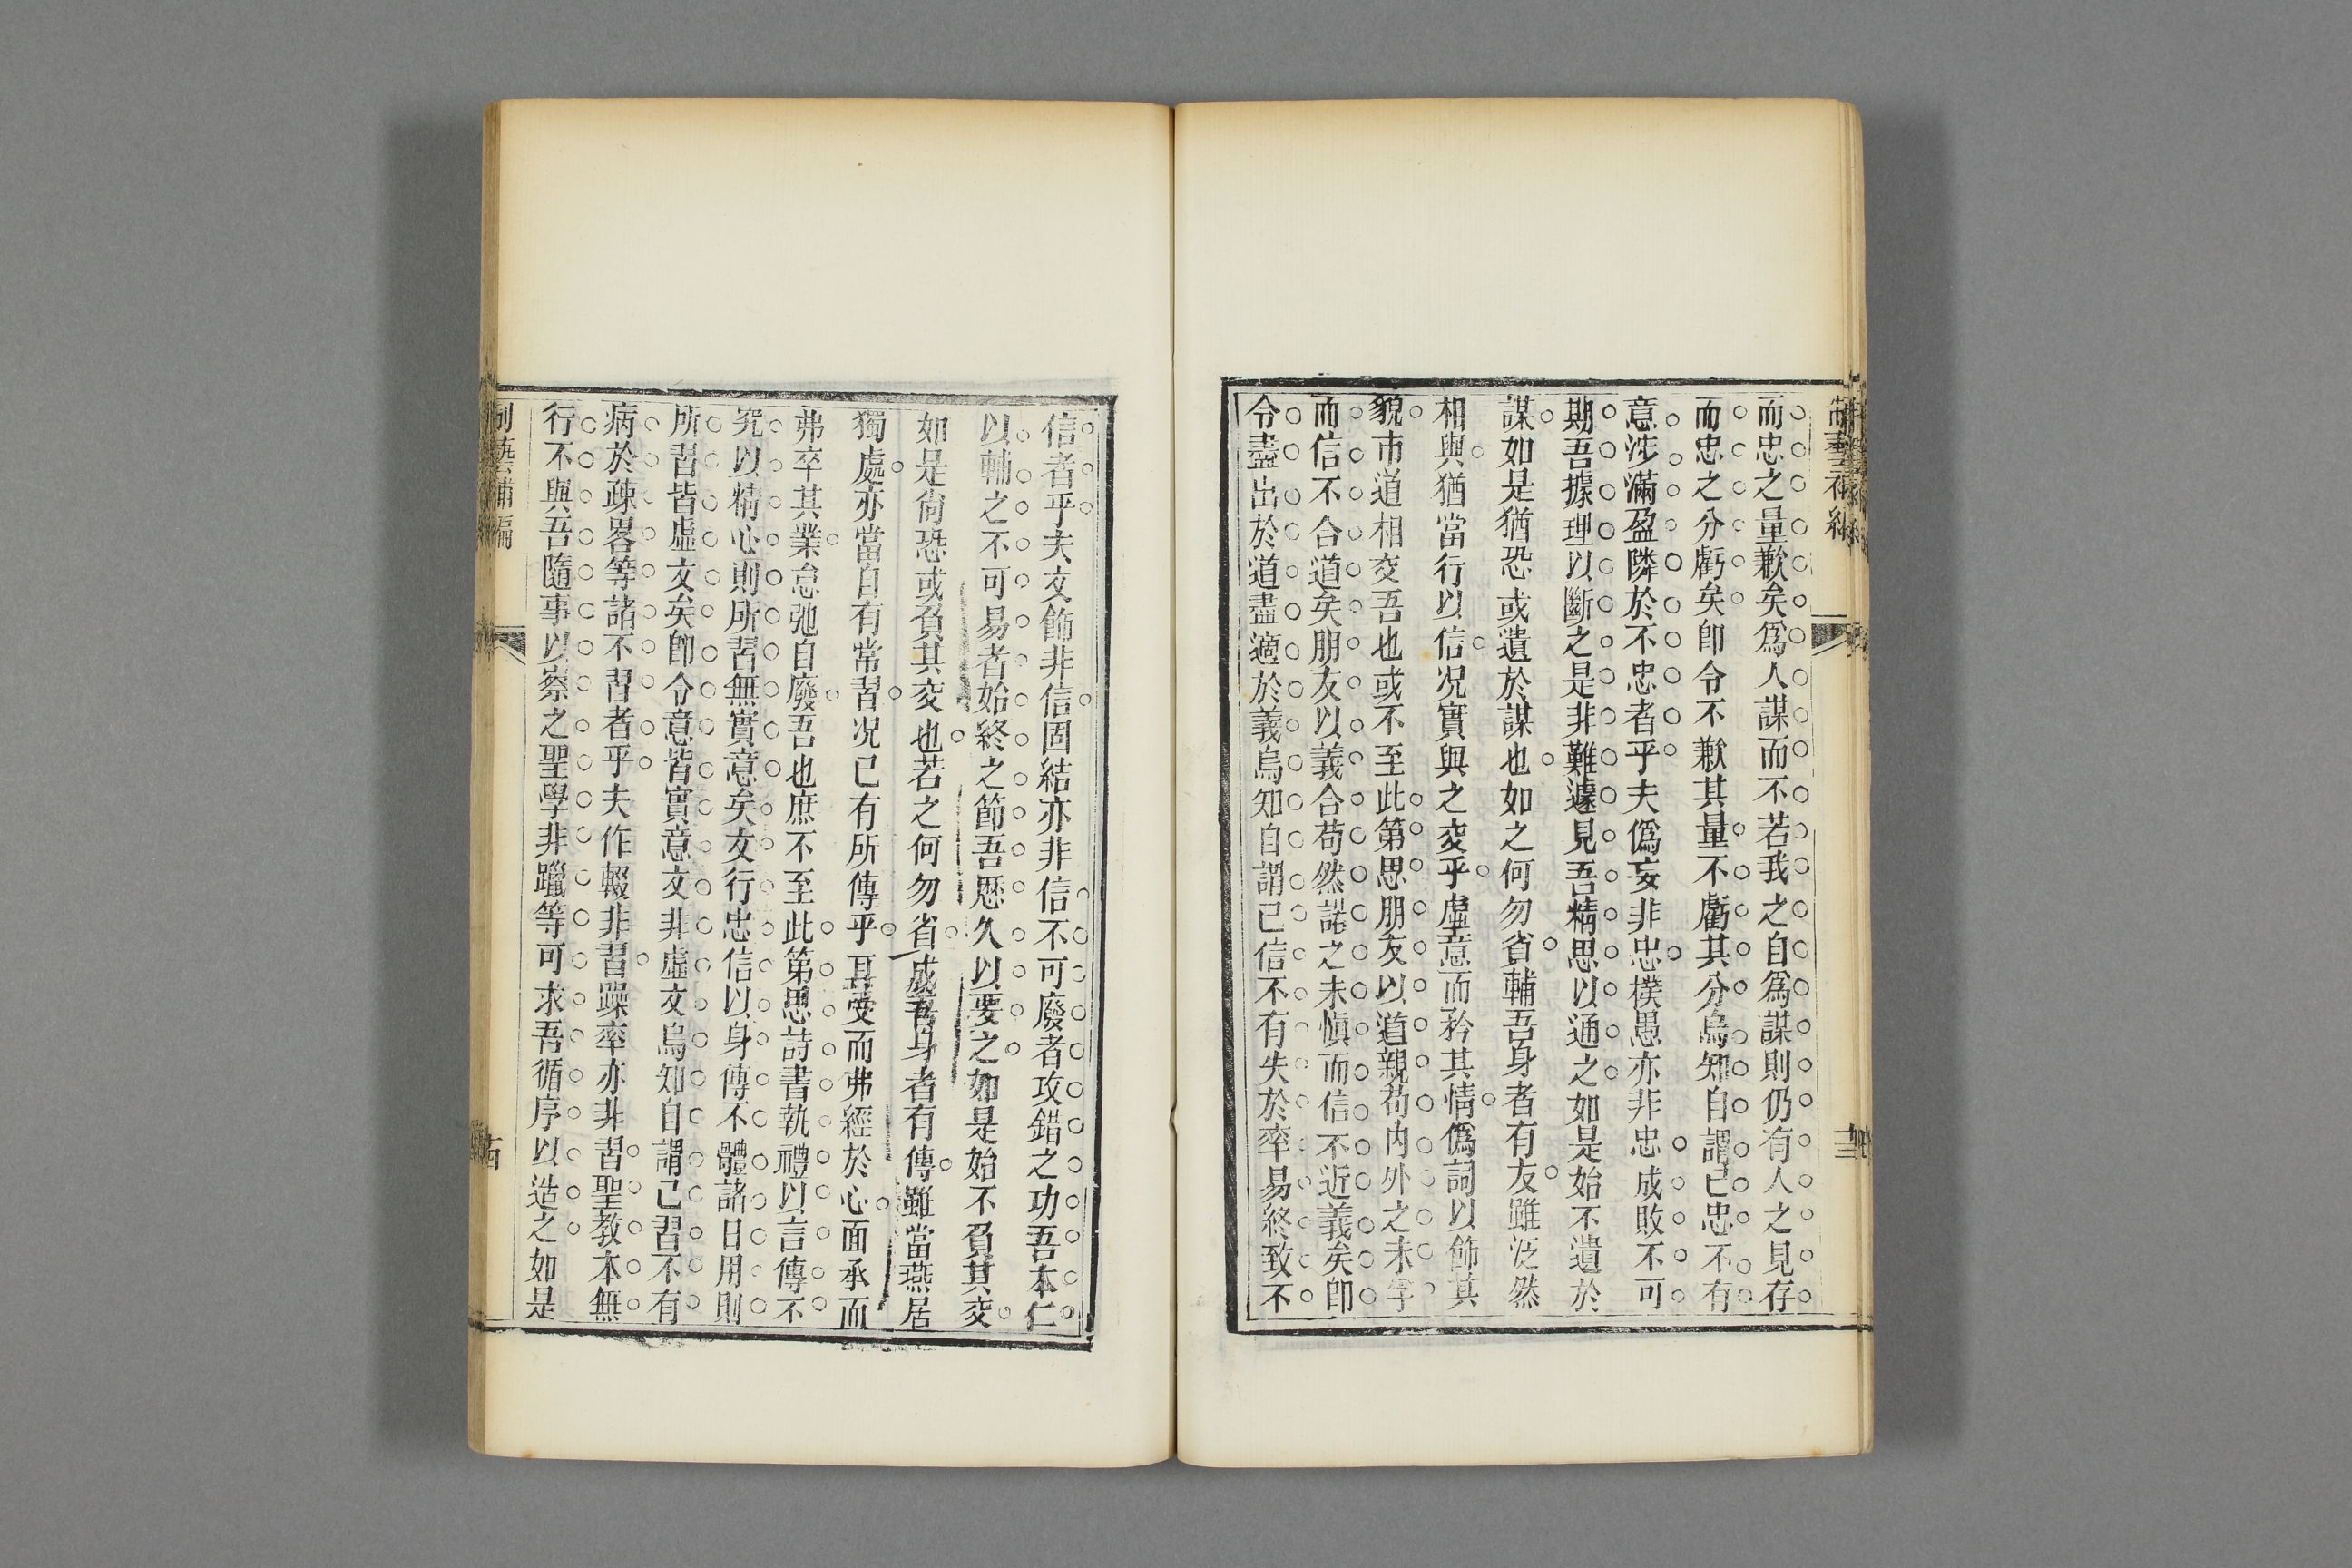 而忠之量歉矣爲人謀而不若我之自爲謀則仍有人之見存
而忠之分虧矣卽令不歉其量不虧其分烏知自謂已忠不有
意涉滿盈隣於不忠者乎夫僞妄非忠樸愚亦非忠成敗不可
期吾據理以斷之是非難遽見吾精思以通之如是始不遺於
謀如是猶恐或遺於謀也如之何勿省輔吾身者有友雖泛然
相與猶當行以信况實與之交乎虛意而矜其情僞詞以飾其
貌市道相交吾也或不至此第思朋友以道親苟内外之未孚
而信不合道矣朋友以義合苟然諾之未愼而信不近義矣卽
令盡出於道盡適於義烏知自謂已信不有失於率易終致不
信者乎夫文飾非信固結亦非信不可廢者攻錯之功吾本仁
以輔之不可易者始終之節吾歷久以要之如是始不負其交
如是尙恐或負其交也若之何勿省成吾身者有傳雖當燕居
獨處亦當自有常習况已有所傳乎耳受而弗經於心面承而
弗卒其業怠弛自廢吾也庶不至此第思詩書執禮以言傳不
究以精心則所習無實意矣文行忠信以身傳不體諸日用則
所習皆虛文矣卽令意皆實意文非虛文烏知自謂已習不有
病於疎畧等諸不習者乎夫作輟非習躁率亦非習聖教本無
行不與吾隨事以察之聖學非躐等可求吾循序以造之如是